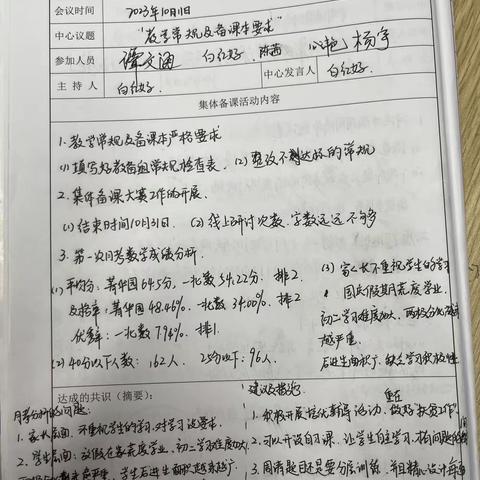 会议时间 2023年10月11日
中心议题 "教学常规及备课本要求"
参加人员 谭文涌 白红好 杨宇
主持人 白红好. 中心发言人 白红好.
集体备课活动内容
1. 教学常规及备课本严格要求
(1) 填写好教备组常规检查表. (2) 整改不到达标的常规
2. 集体备课大赛工作的开展.
(1) 结束时间10月31日. (2) 线上研讨次数、字数远远不够多
3. 第一次月考数学成绩分析.
(1) 平均分: 菁华园 64.5分, 一北数 54.22分. 排2
及格率: 菁华园 48.46%. 一北数 34.00%. 排2
优秀: 一北数 7.94%. 排1.
(2) 40分以下人数: 162人. 25分以下: 96人.
(3) 家长不重视学生的学习
国庆假期荒废学业,
初二学习难度加大, 两极分化
越严重.
后进生面积广, 缺乏学习积极性
达成的共识（摘要）:
月考分析的问题:
1. 家长层面: 不重视学生的学习, 对学习没要求.
2. 学生层面: 放假在家荒废学业, 初二学习难度加大.
学生后进生面积越来越广.
建议及措施
1. 积极开展培优辅库活动, 做好"扶贫工作".
2. 可以开设自习课, 让学生自主学习, 有问题
3. 周清题目还是要分层训练, 并且精心设计每